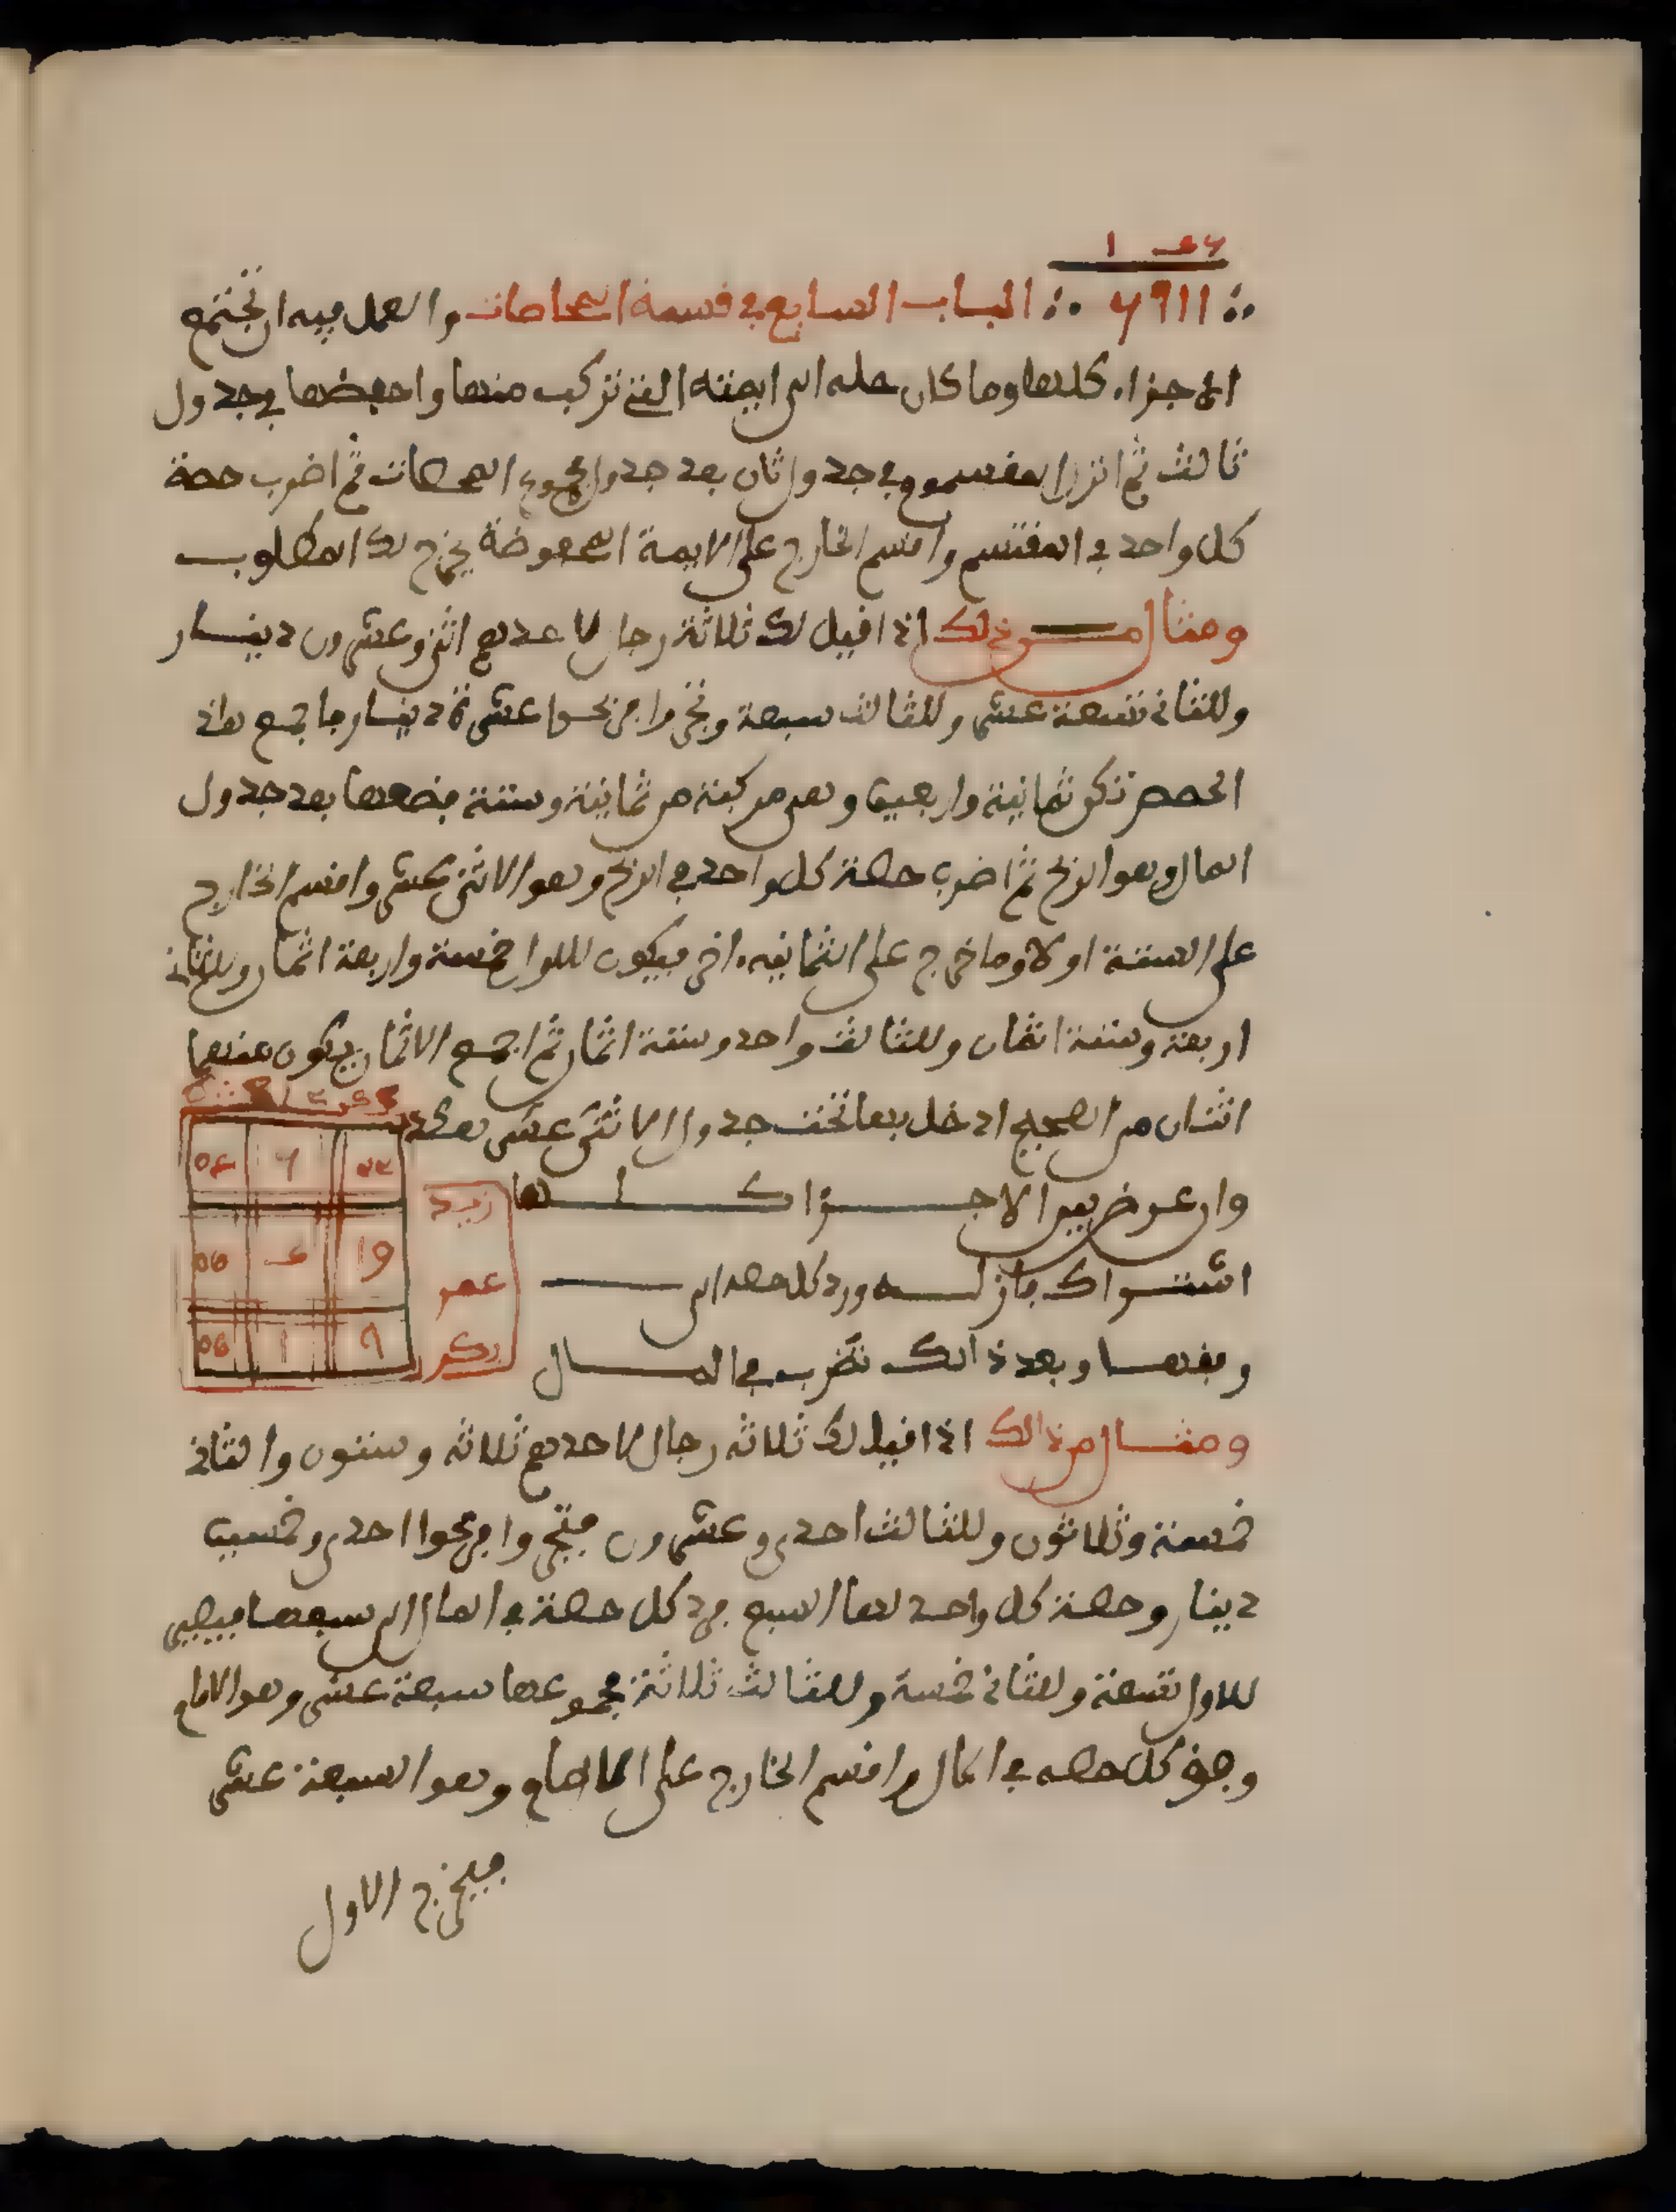 الباب السابع في قسمة المحاصات والعمل فيه ان تجتمع
الاجزاء كلها وما كان حله الى ايمته التي تركب منها واحفظها في جدول
ثالث ثم انزل المقسوم في جدول ثان بعد جدول مجموع المحصات ثم اضرب حصة
كل واحد في المقتسم واقسم الخارج على الايمة المحفوظة يخرج لك المطلوب
ومثال من ذلك اذا قيل لك ثلاثة رجال لاحدهم اثنى وعشرون دينار
وللثاني تسعة عشر وللثالث سبعة وتجروا فربحوا عشرة دينار فاجمع هاذ
الحصص تكن ثمانية واربعين وهي مركبة من ثمانية وستة فضعها بعد جدول
المال وهو الربح ثم اضرب حصة كل واحد في الربح وهو الاثنى عشر واقسم الخارج
على الستة اولا وما خرج على الثمانيه اخر فيكون للاول خمسة واربعة اثمان وللثاني
اربعة وستة اثمان وللثالث واحد وستة اثمان ثم اجمع الاثمان يكون منهما
اثنان من الصحيح ادخل بها تحت جدول الاثنى عشر هكذا
وان عرض بين الاجزا كلها
زيد
اشتراك فازله ورد كل حصه الى
عمر
وفقها وبعد ذالك تضرب في المال
بكر
ومثال من ذالك اذا قيل لك ثلاثه رجال لاحدهم ثلاثه وستون والثاني
خمسة وثلاثون وللثالث احدى وعشرون فتجروا فربحوا احدى وخمسين
دينار وحصة كل واحد لها السبع فرد كل حصة في المال الى سبعها فيصير
للاول تسعة وللثاني خمسة وللثالث ثلاثة مجموعها سبعة عشر وهو الامام
وفق كل حصه في المال واقسم الخارج على الامام وهو السبعة عشر
فيخرج الاول